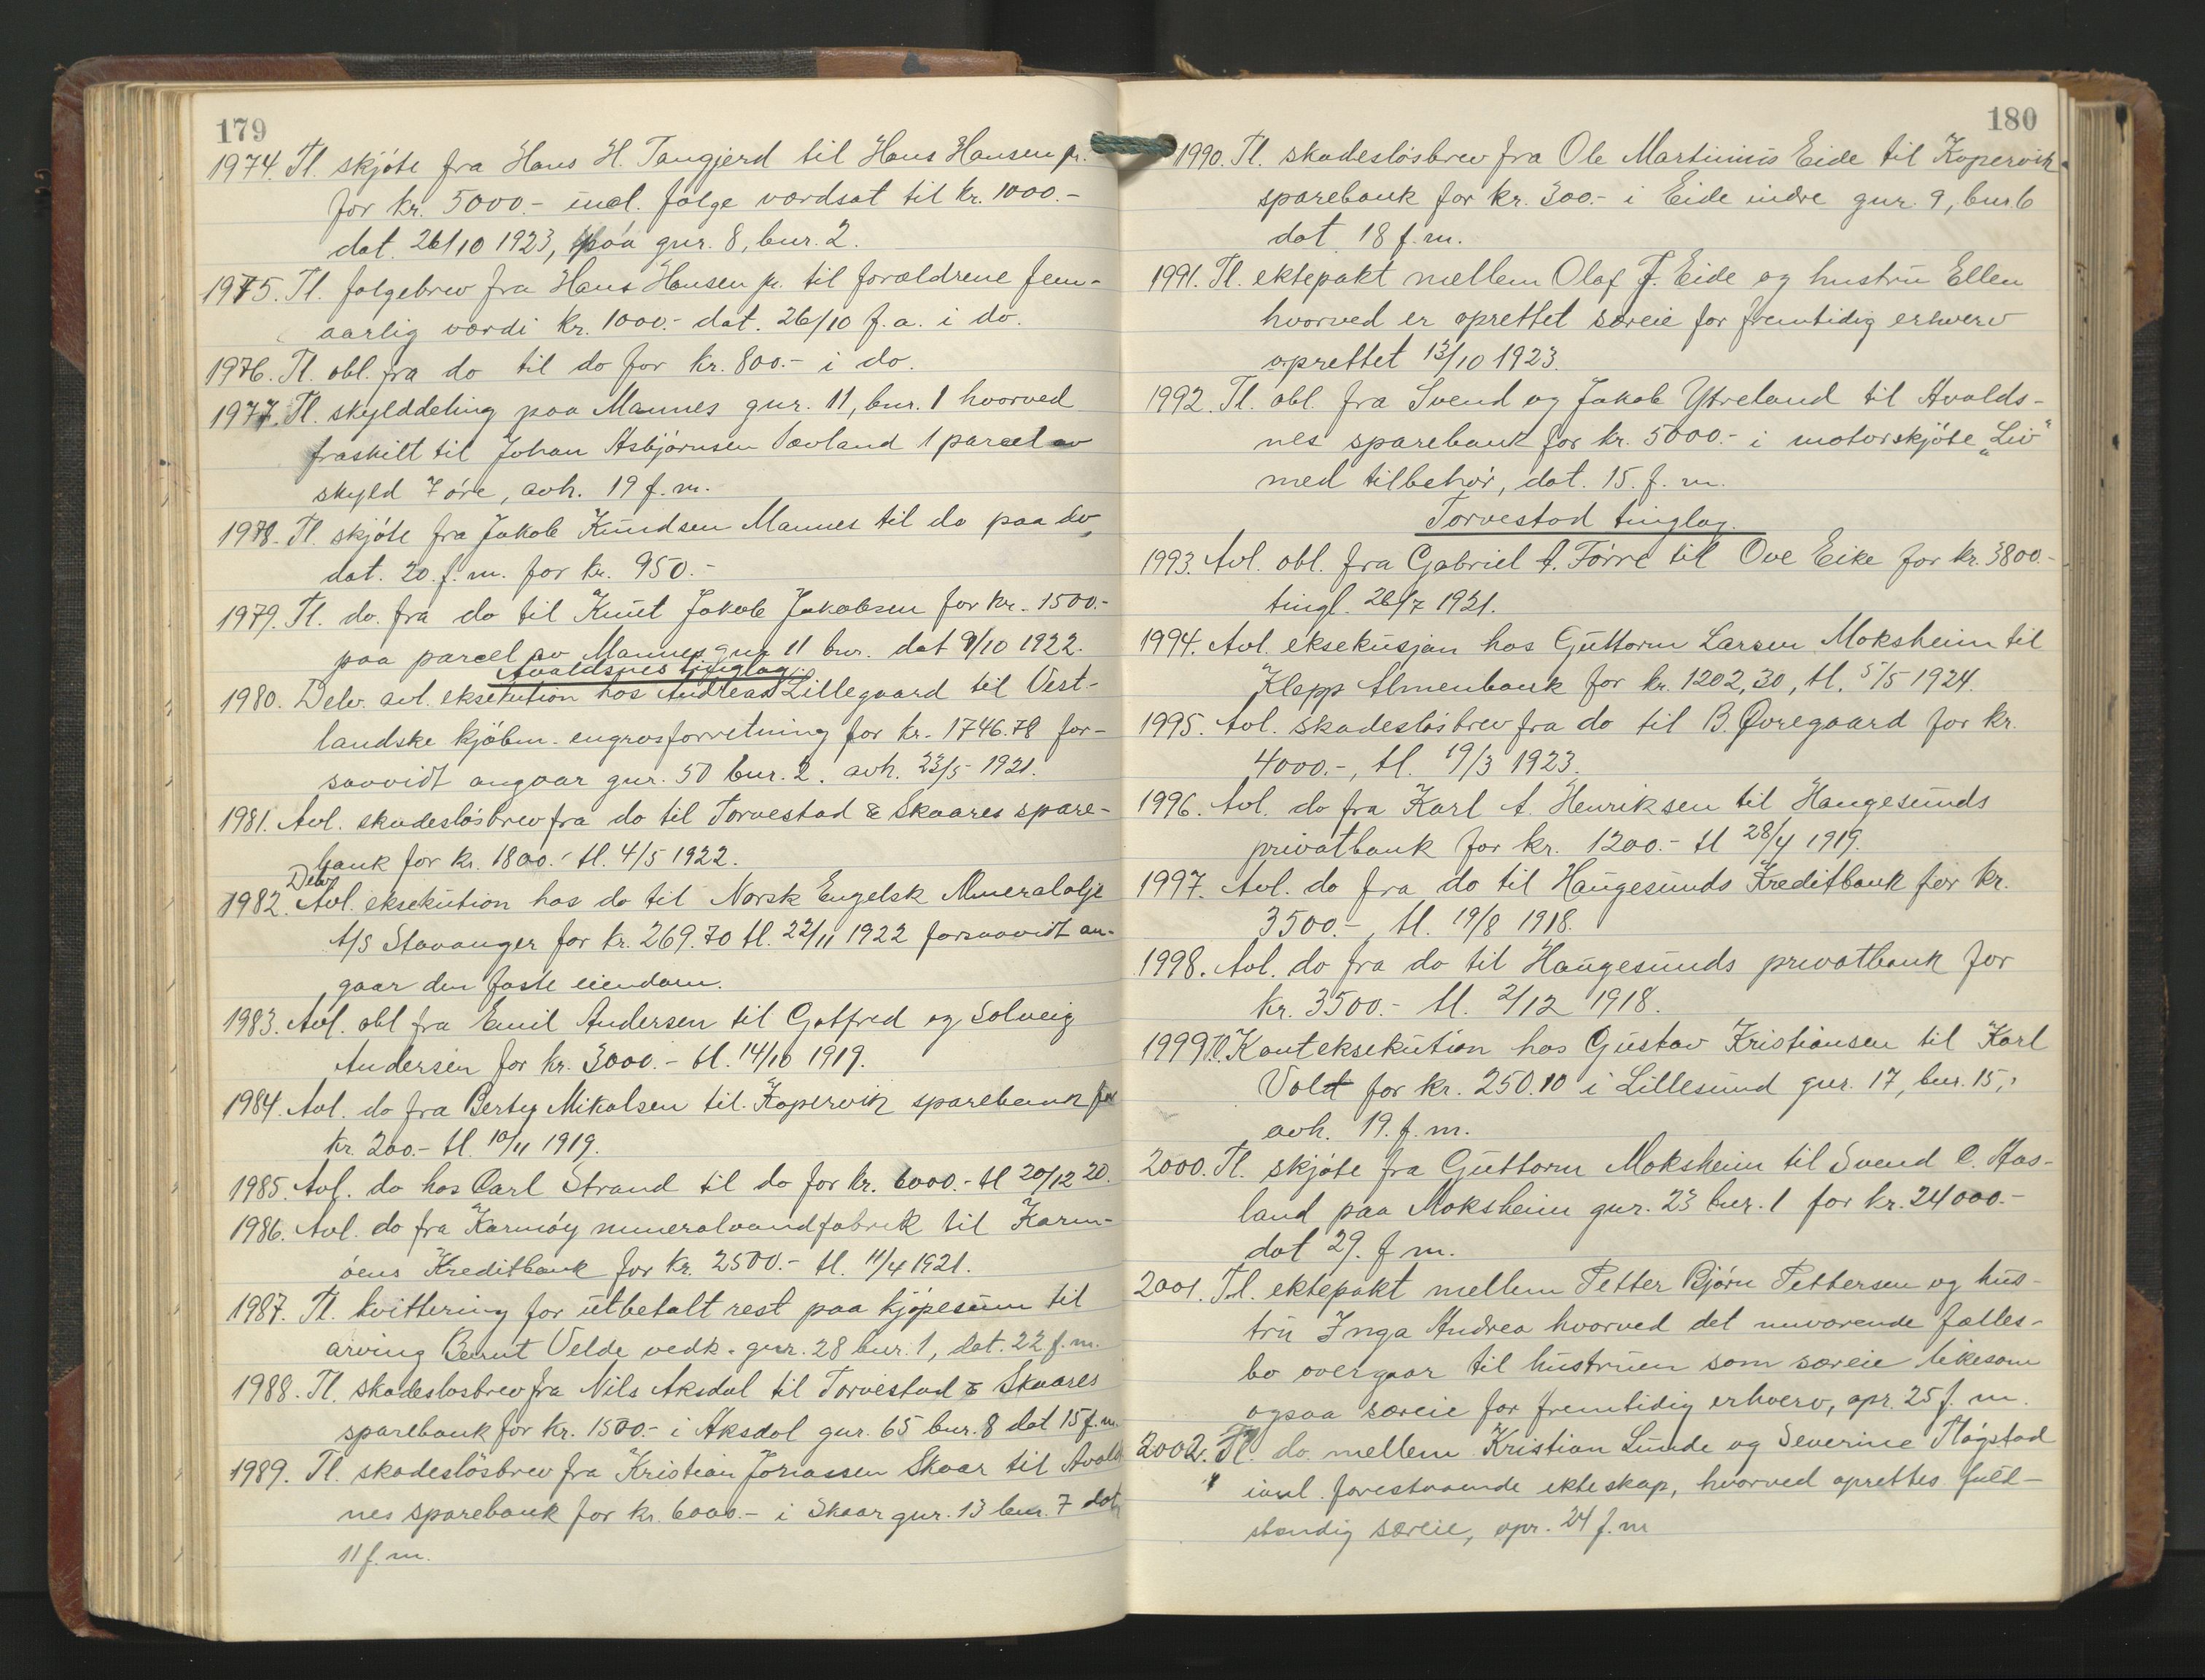 179
1974. Tl. skjöte fra Hans H. Tangjerd til Hans Hansen jr.
for kr. 5000.- incl. følge værdsat til kr. 1000.-
dat. 26/10 1923, paa gnr. 8, bnr. 2.
1975. Tl. følgebrev fra Hans Hansen jr. til forældrene fem-
aarlig værdi kr. 1000.- dat. 26/10 f.a. i do.
1976. Tl. obl. fra do til do for kr. 800.- i do.
1977. Tl. skylddeling paa Mannes gnr. 11, bnr. 1 hvorved
fraskilt til Johan Asbjörnsen Sævland 1 parcel av
skyld 7 öre, avh. 19 f.m.
1978. Tl. skjöte fra Jakob Knudsen Mannes til do paa do,
dat. 20. f.m. for kr. 950.-
1979. Tl. do. fra do til Knut Jakob Jakobsen for kr. 1500.-
paa parcel av Mannes gnr 11 bnr. dat 9/10 1922.
Avaldsnes tinglag.
1980. Delv. avl. eksekution hos Andreas Lillegaard til Vest-
landske kjöbm. engrosforretning for kr. 1746.78 for-
saavidt angaar gnr. 50 bnr. 2. avh. 23/5 1921.
1981. Avl. skadeslösbrev fra do til Torvestad & Skaares spare-
bank for kr. 1800.- tl. 4/5 1922.
Delv.
1982. Avl. eksekution hos do til Norsk Engelsk Mineralolje
A/S Stavanger for kr. 269.70 tl. 22/11 1922 forsaavidt an-
gaar den faste eiendom.
1983. Avl. obl fra Emil Andersen til Gotfred og Solveig
Andersen for kr. 3000.- tl. 14/10 1919.
1984. Avl. do fra Berty Mikalsen til Kopervik sparebank for
kr. 200.- tl. 10/11 1919.
1985. Avl. do hos Carl Strand til do for kr. 6000.- tl 20/12 20.
1986. Avl. do fra Karmöy mineralvandfabrik til Karm-
öens Kreditbank for kr. 2500.- tl. 11/4 1921.
1987. Tl. kvittering for utbetalt rest paa kjöpesum til
arving Bernt Velde vedk. gnr. 28 bnr. 1, dat. 22 f.m.
1988. Tl. skadeslosbrev fra Nils Aksdal til Torvestad & Skaares
sparebank for kr. 1500.- i Aksdal gnr. 65 bnr. 8 dat 15 f.m.
1989. Tl. skadeslösbrev fra Kristian Jonassen Skaar til Avalds
nes sparebank for kr. 6000.- i Skaar gnr. 13 bnr. 7 dat.
11 f.m.
180
1990. Tl. skadeslösbrev fra Ole Martinius Eide til Kopervik
sparebank for kr. 300.- i Eide indre gnr. 9, bnr. 6
dat 18 f.m.
1991. Tl. ektepakt mellem Olaf T. Eide og hustru Ellen
hvorved er oprettet særeie for fremtidig erhverv
oprettet 13/10 1923.
1992. Tl. obl. fra Svend og Jakob Ytreland til Avalds-
nes sparebank for kr. 5000.- i motorskjöte „Liv"
med tilbehör, dat. 15. f. m.
Torvestad tinglag.
1993. Avl. obl. fra Gabriel A. Förre til Ove Eike for kr. 3800.-
tingl. 26/7 1921.
1994. Avl. eksekusjon hos Guttorm Larsen Moksheim til
Klepp Almenbank for kr. 1202,30, tl. 5/5 1924.
1995. Avl. skadeslösbrev fra do til B. Øvregaard for kr.
4000.-, tl. 19/3 1923.
1996. Avl. do fra Karl A. Henriksen til Haugesunds
privatbank for kr. 1200.- tl 28/4 1919.
1997. Avl. do fra do til Haugesunds Kreditbank for kr.
3500.-, tl. 19/8 1918.
1998. Avl. do fra do til Haugesunds privatbank for
kr. 3500.- tl. 2/12 1918.
1999 Tl. Kont eksekution hos Gustav Kristiansen til Karl
Vold for kr. 250.10 i Lillesund gnr. 17, bnr. 15,
avh. 19. f.m.
2000. Tl. skjöte fra Guttorm Moksheim til Svend C. Aas-
land paa Moksheim gnr. 23 bnr. 1 for kr. 24000.-
dat 29. f m.
2001. Tl. ektepakt mellem Petter Björn Pettersen og hus-
tru Inga Andrea hvorved det nuværende fælles-
bo overgaar til hustruen som særeie likesom
ogsaa særeie for fremtidig erhverv, opr. 25 f. m.
2002. Tl. do. mellem Kristian Lunde og Severine Flögstad
ianl. forestaaende ekteskap, hvorved oprettes fuld-
stændig særeie, opr. 24 f.m